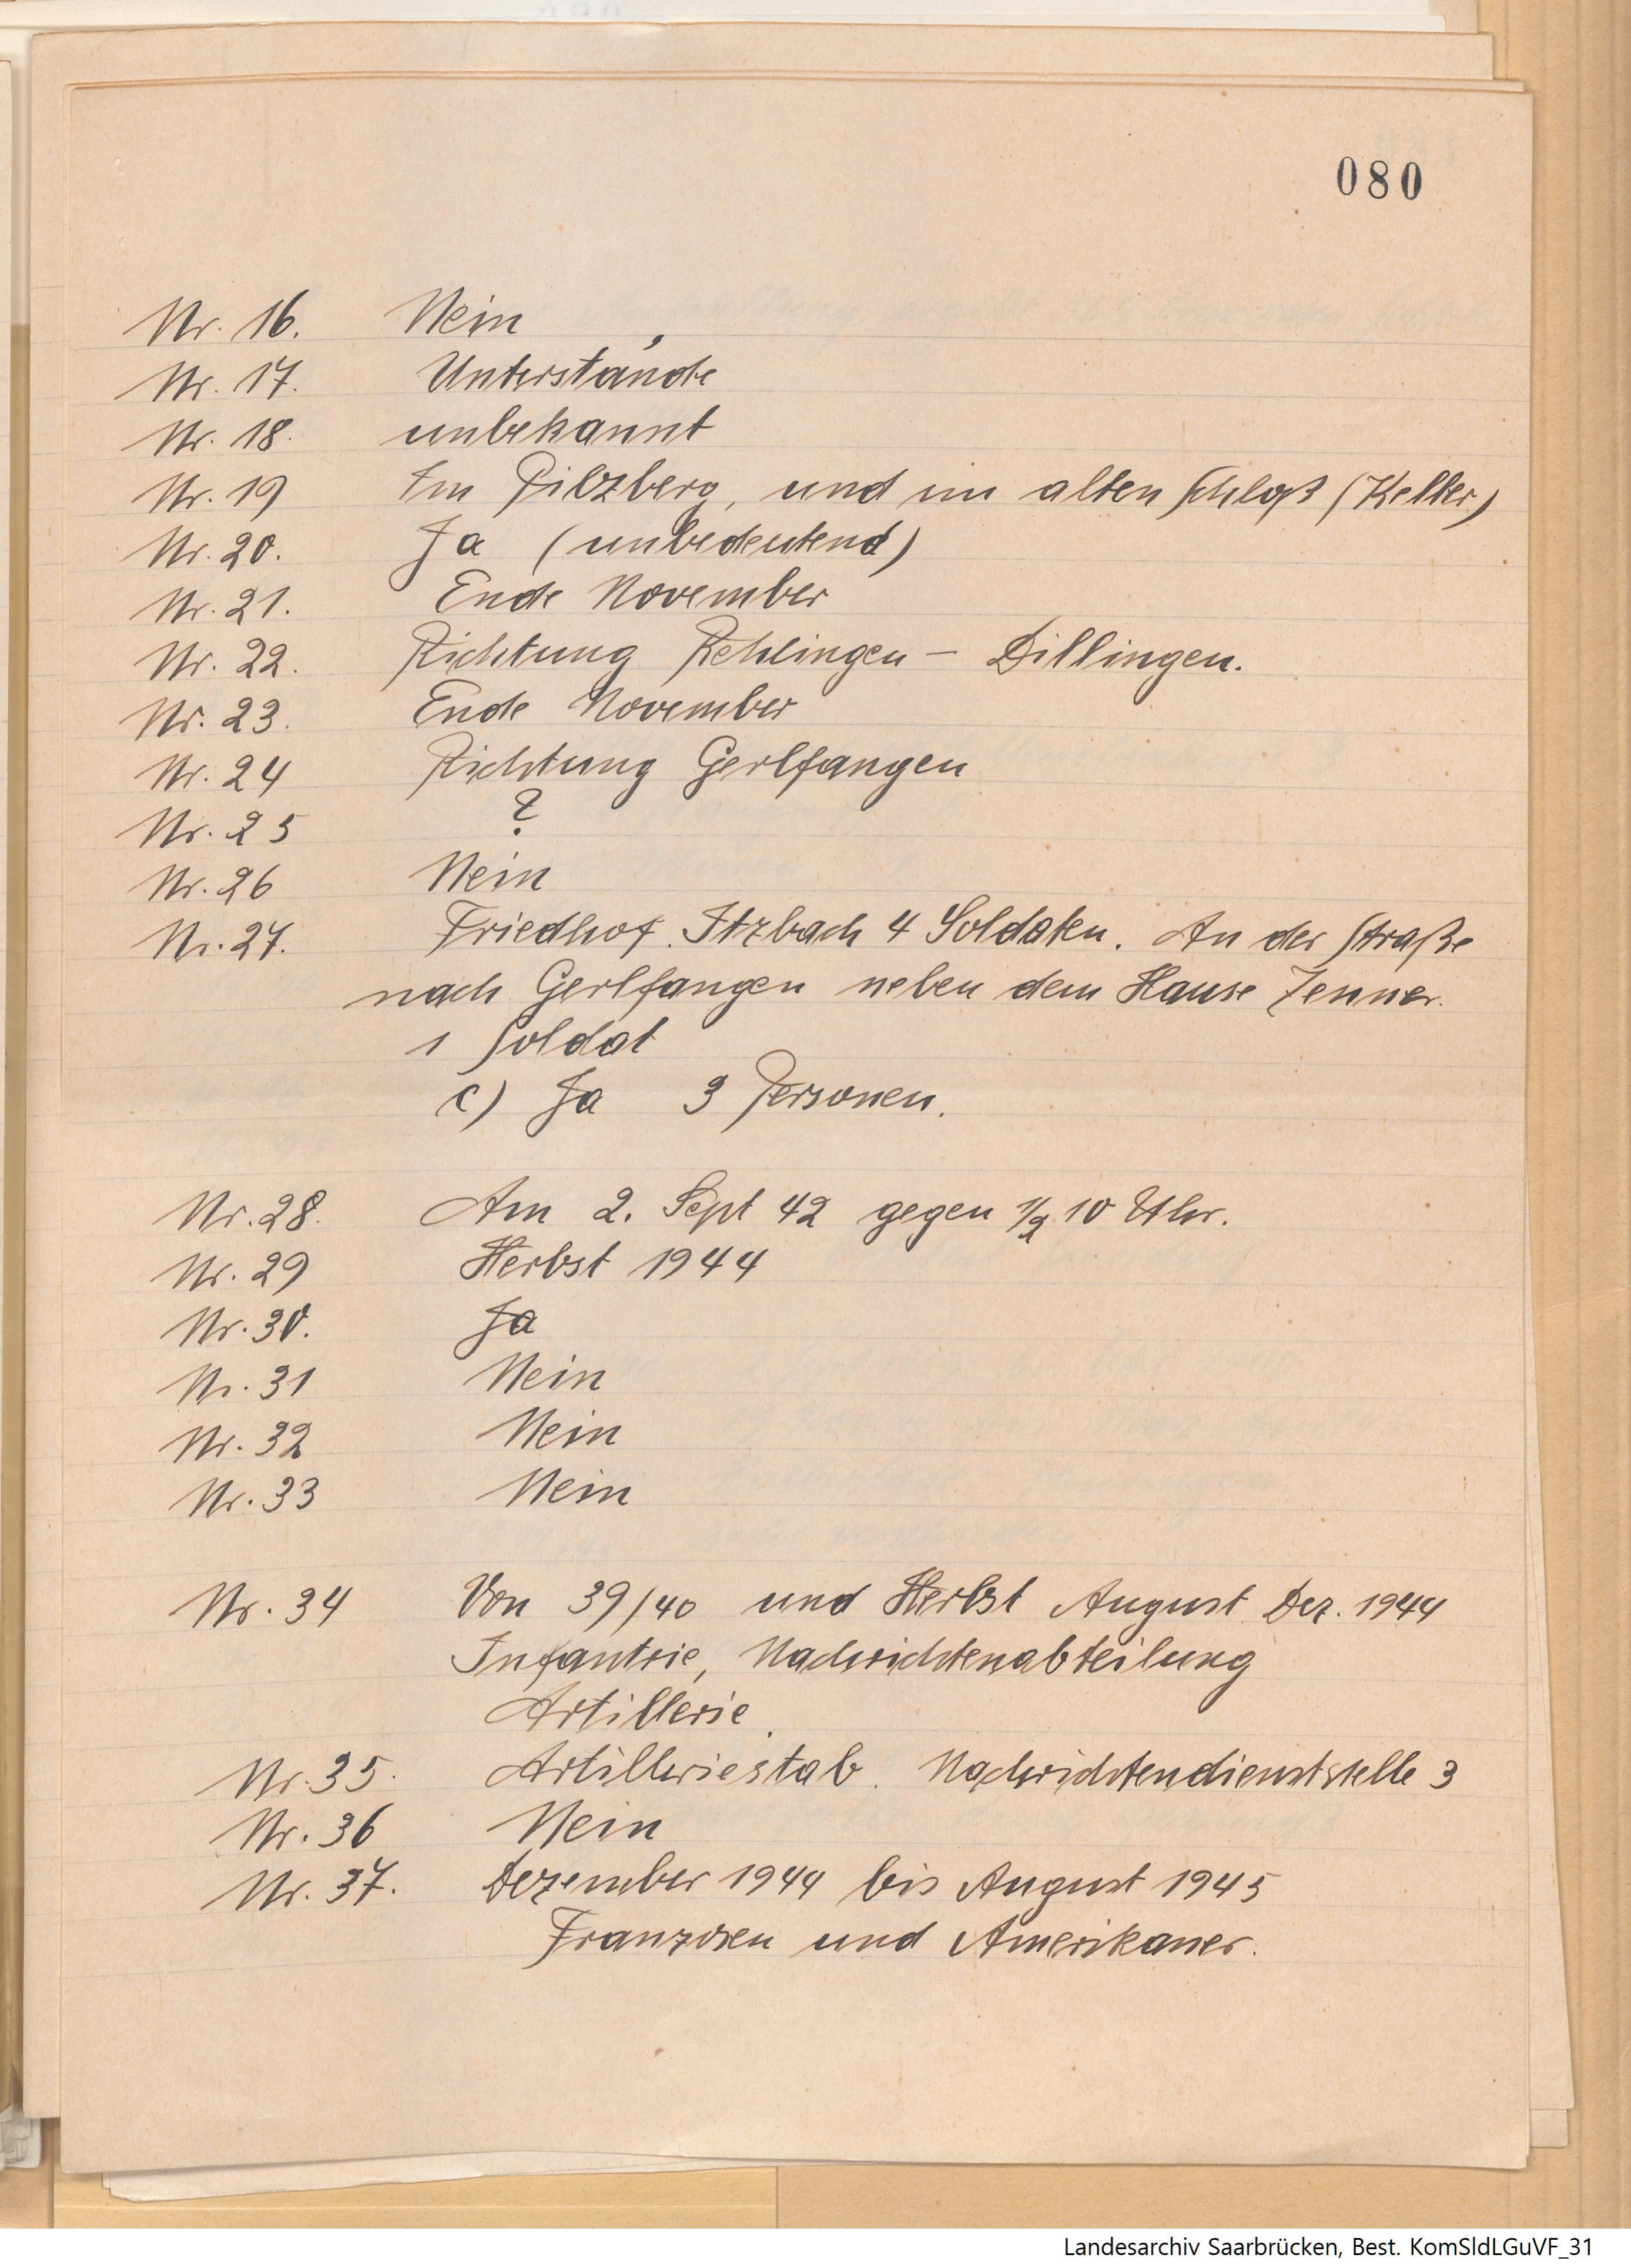 080
Nr. 16. Nein
Nr. 17. Unterstände
Nr. 18. unbekannt
Nr. 19 Im Pilzberg, und im alten Schloß (Keller)
Nr. 20. Ja (unbedeutend)
Nr. 21. Ende November
Nr. 22. Richtung Rehlingen – Dillingen.
Nr. 23. Ende November
Nr. 24 Richtung Gerlfangen
Nr. 25 ?
Nr. 26 Nein
Nr. 27. Friedhof. Itzbach 4 Soldaten. An der Straße
nach Gerlfangen neben dem Hause Zenner.
1 Soldat
c) Ja 3 Personen.
Nr. 28. Am 2. Sept 42 gegen 1/2 10 Uhr.
Nr. 29 Herbst 1944
Nr. 30. Ja
Nr. 31 Nein
Nr. 32 Nein
Nr. 33 Nein
Nr. 34 Von 39/40 und Herbst August Dez. 1944
Infantrie, Nachrichtenabteilung
Artillerie.
Nr. 35. Artilleriestab. Nachrichtendienststelle 3
Nr. 36 Nein
Nr. 37. Dezember 1944 bis August 1945
Franzosen und Amerikaner.
Landesarchiv Saarbrücken, Best. KomSldLGuVF_31